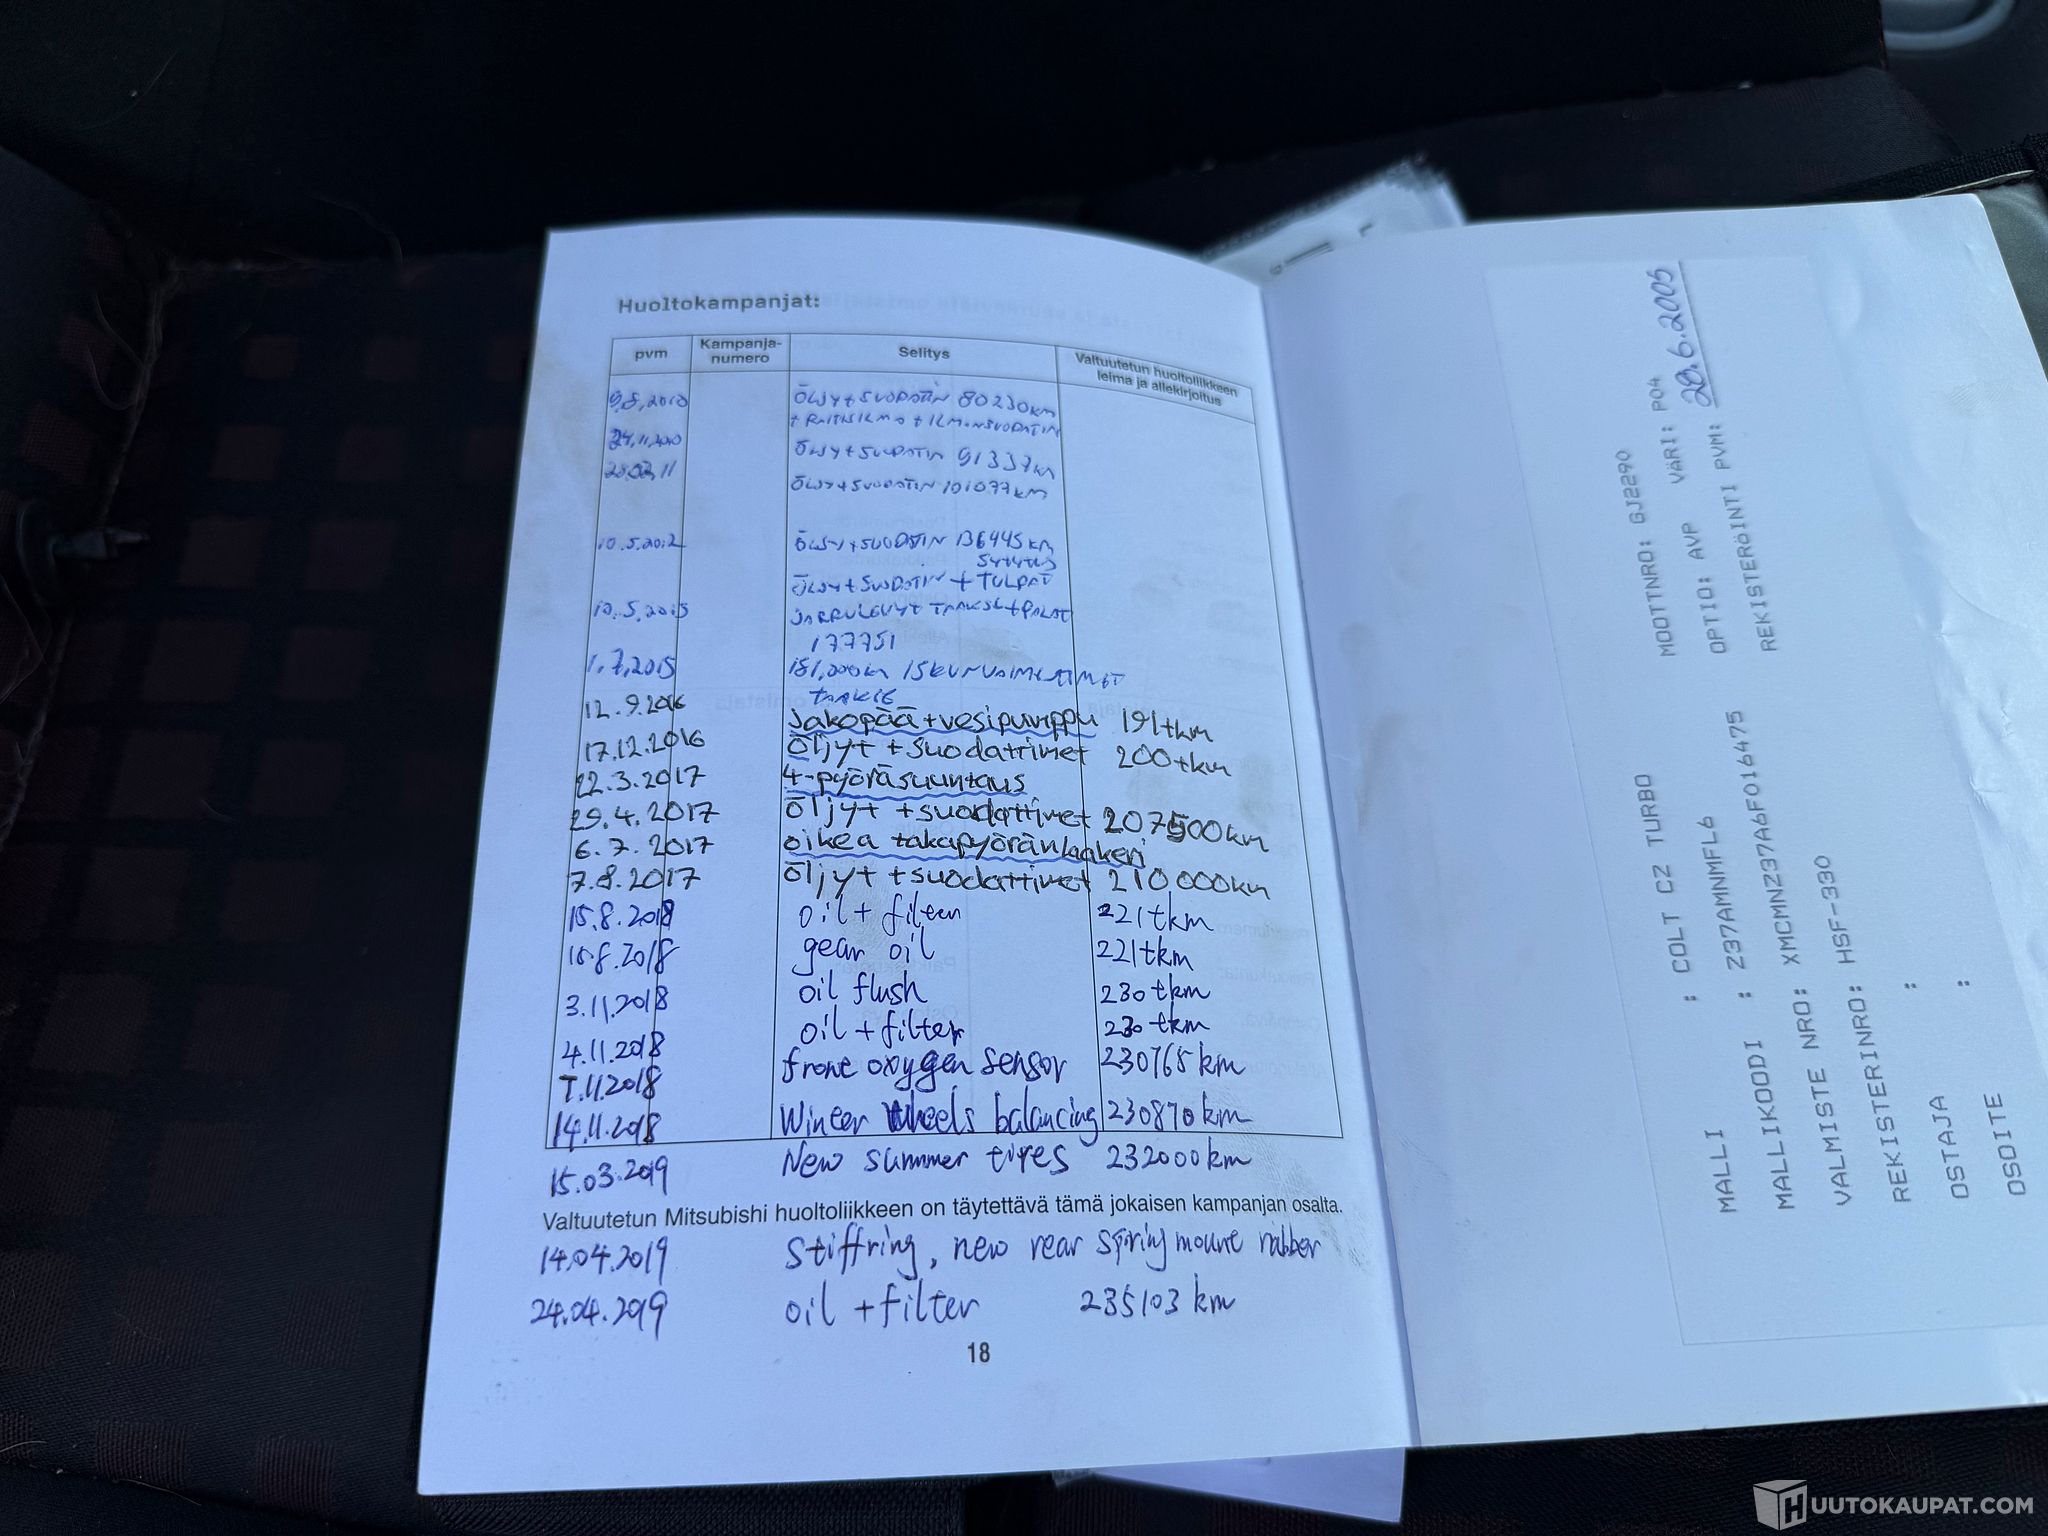 Huoltokampanjat:
pvm Kampanja-numero Selitys Valtuutetun huoltoliikkeen leima ja allekirjoitus
9.8.2010 ÖLJY+SUODATIN 80230KM
+ RAITISILMA + ILMANSUODATIN
24.11.2010 ÖLJY+SUODATIN 91337KM
28.02.11 ÖLJY+SUODATIN 101077KM
10.5.2012 ÖLJY+SUODATIN 136445KM
SYTYTYS
ÖLJY+SUODATIN + TULPAT
10.5.2015 JARRULEVYT TAAKSE+PALAT
177751
1.7.2015 181,000KM ISKUNVAIMENTIMET
TAAKSE
12.9.2016 jakopää+vesipumppu 191tkm
17.12.2016 Öljyt +suodattimet 200tkm
22.3.2017 4-pyöräsuuntaus
29.4.2017 Öljyt +suodattimet 207500km
6.7.2017 oikea takapyöränlaakeri
7.8.2017 Öljyt +suodattimet 210000km
15.8.2018 oil+ filter 221tkm
18.8.2018 gear oil 221tkm
3.11.2018 oil flush 230tkm
4.11.2018 oil +filter 230tkm
7.11.2018 front oxygen sensor 230765km
14.11.2018 Winter Wheels balancing 230870km
15.03.2019 New summer tires 232000km
Valtuutetun Mitsubishi huoltoliikkeen on täytettävä tämä jokaisen kampanjan osalta.
14.04.2019 Stiffring, new rear spring mount rubber
24.04.2019 oil +filter 235103 km
18
MALLI : COLT CZ TURBO MOOTTNRO: GJ2290
MALLIKOODI : Z37AMNMFL6 OPTIO: AVP VÄRI: P04
VALMISTE NRO: XMCMNZ37A6F016475 REKISTERÖINTI PVM: 20.6.2005
REKISTERINRO: HSF-330
OSTAJA :
OSOITE :
HUUTOKAUPAT.COM